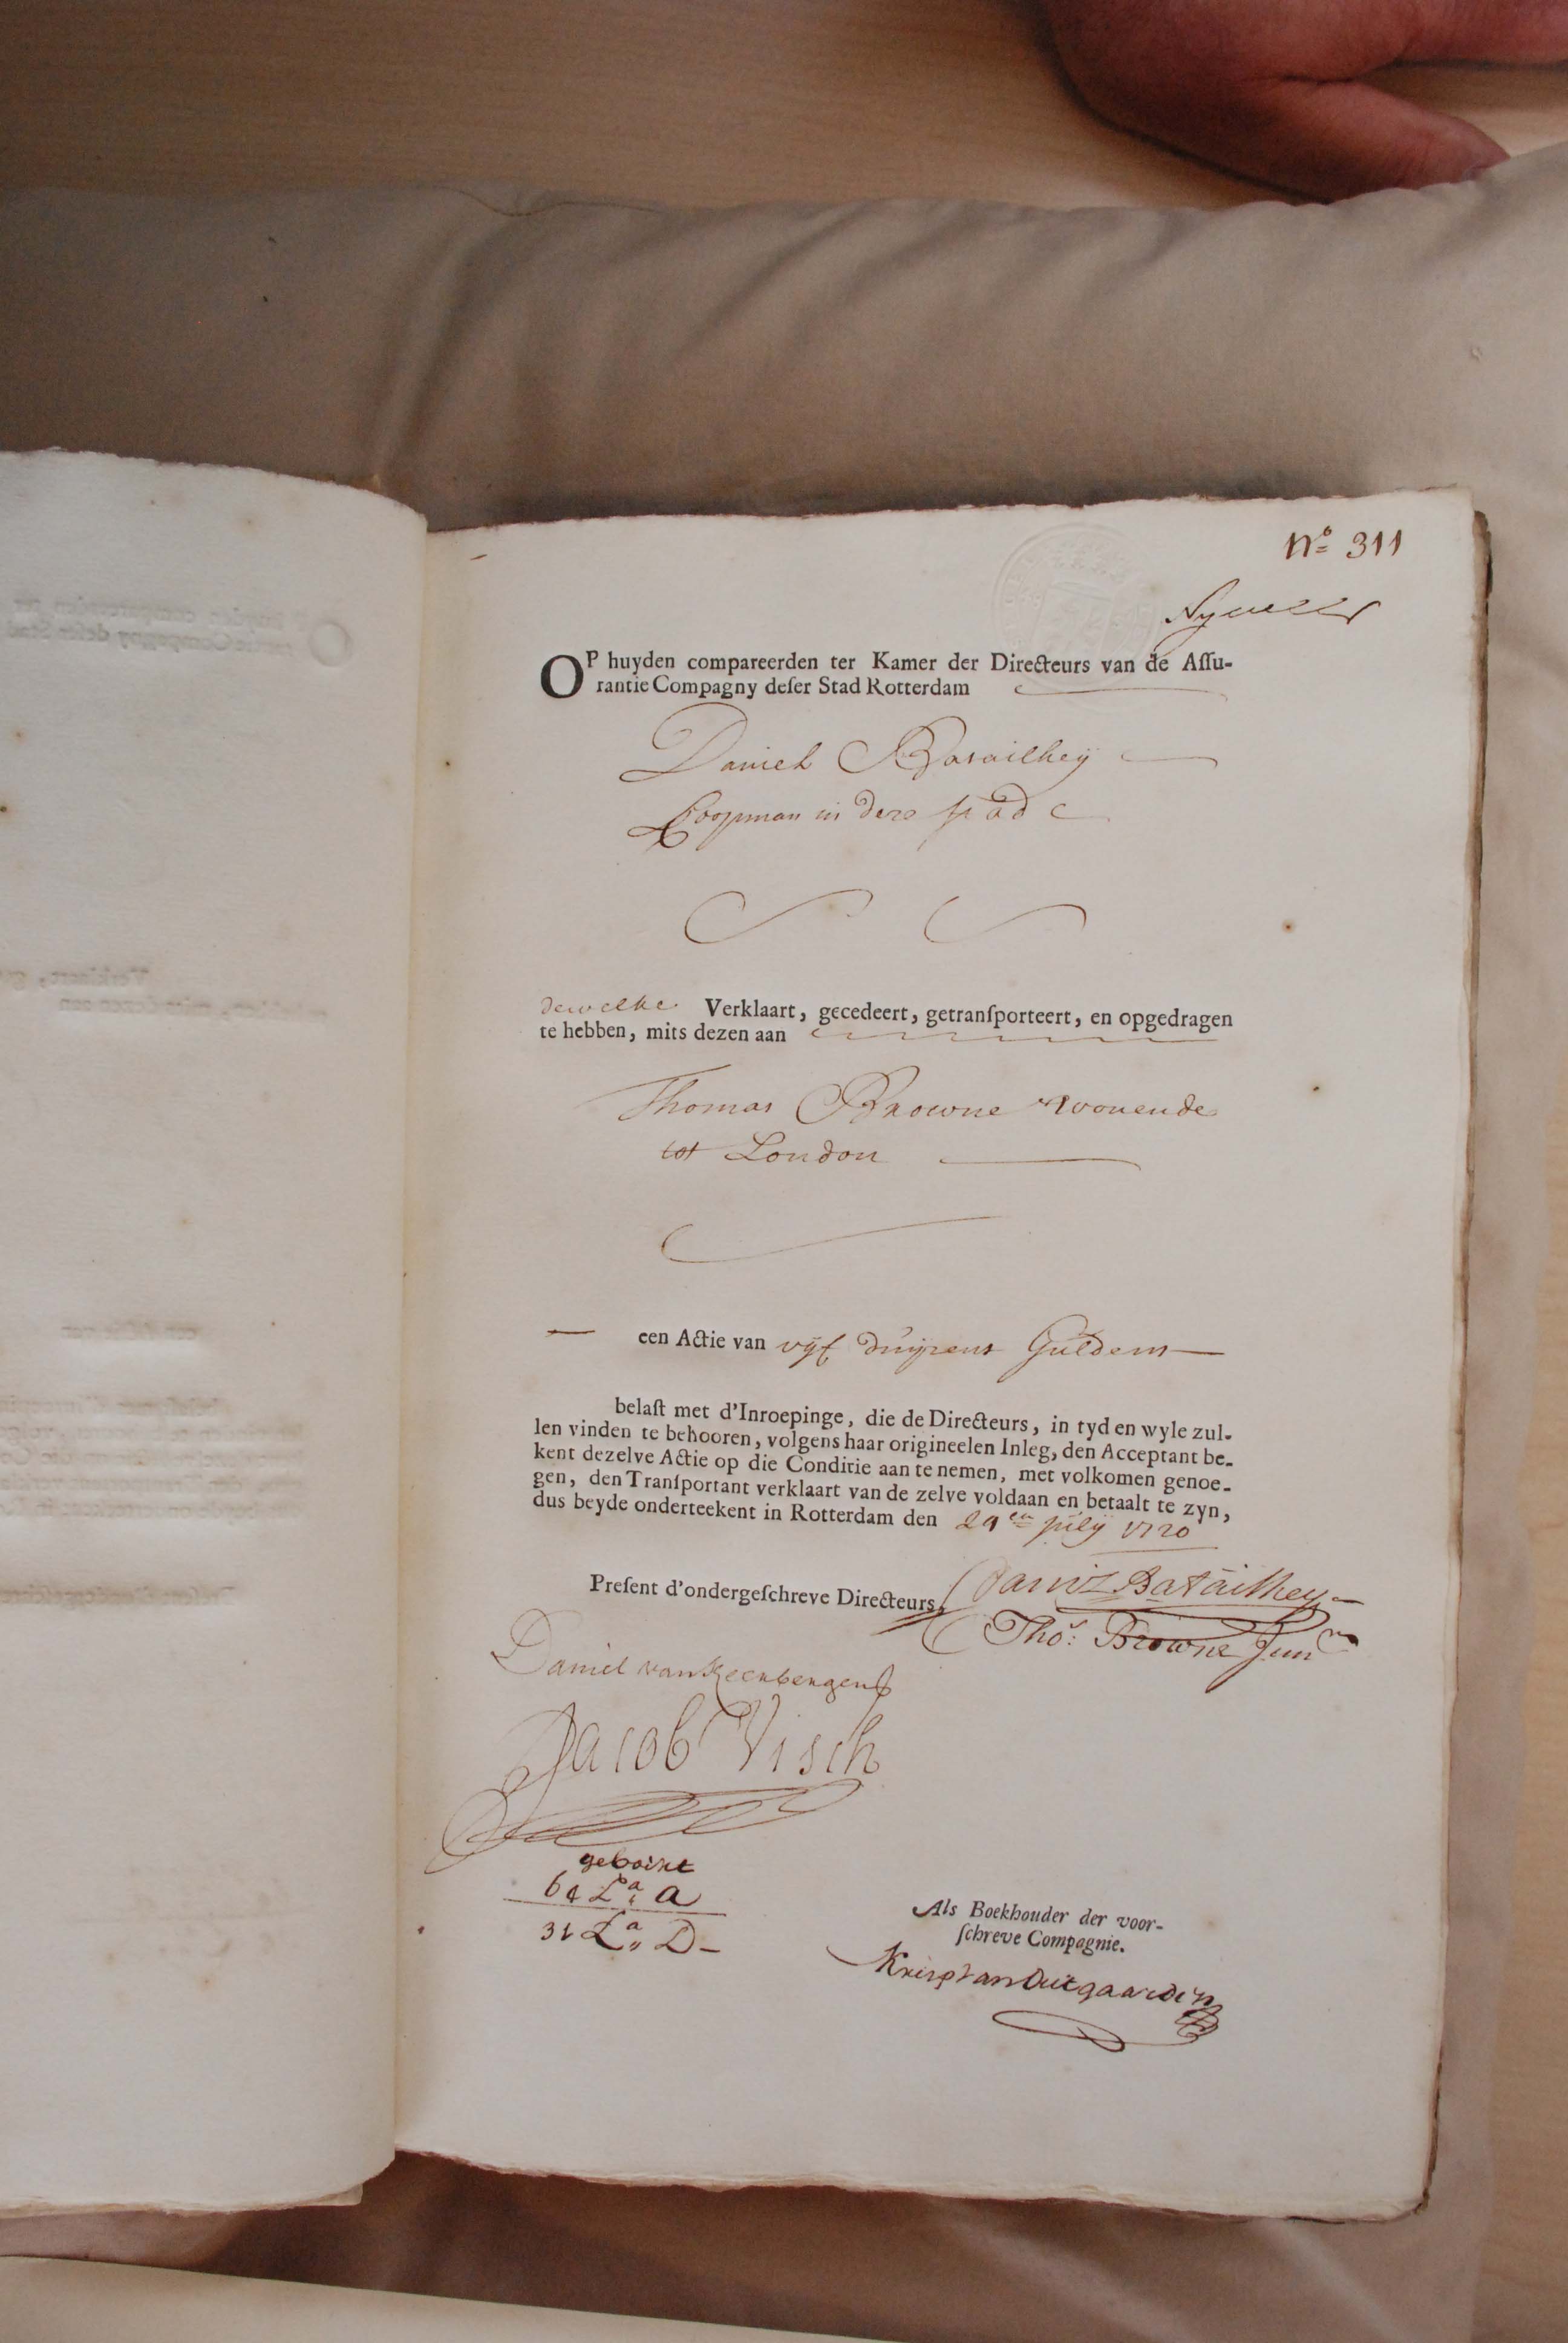 No 311
OP huyden compareerden ter Kamer der Directeurs van de Aſſu-
rantie Compagny deſer Stad Rotterdam
Daniel Batailhey
Coopman in deze stad
dewelke Verklaart, gecedeert, getranſporteert, en opgedragen
te hebben, mits dezen aan
Thomas Browne wonende
tot London
een Actie van vijf duijzent Guldens
belaſt met d'Inroepinge, die de Directeurs, in tyd en wyle zul-
len vinden te behooren, volgens haar origineelen Inleg, den Acceptant be-
kent dezelve Actie op die Conditie aan te nemen, met volkomen genoe-
gen, den Tranſportant verklaart van de zelve voldaan en betaalt te zyn,
dus beyde onderteekent in Rotterdam den 29en july 1720
Preſent d'ondergeſchreve Directeurs, Daniel Batailhey
Thos: Browne Junr
Daniel van
Jacob Visch
geboekt
64 La A
31 La D
Als Boekhouder der voor-
ſchreve Compagnie.
Krisp van Outgaarden